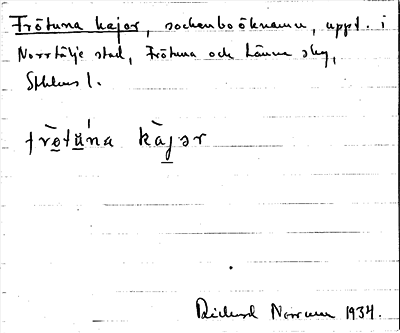 Frötuna kajor, sockenboöknamn, uppt. i
Norrtälje stad, Frötuna och Länna skg,
Sthlms l.
frø̀tʉ́na kàjər
Rickard Norrman 1934.